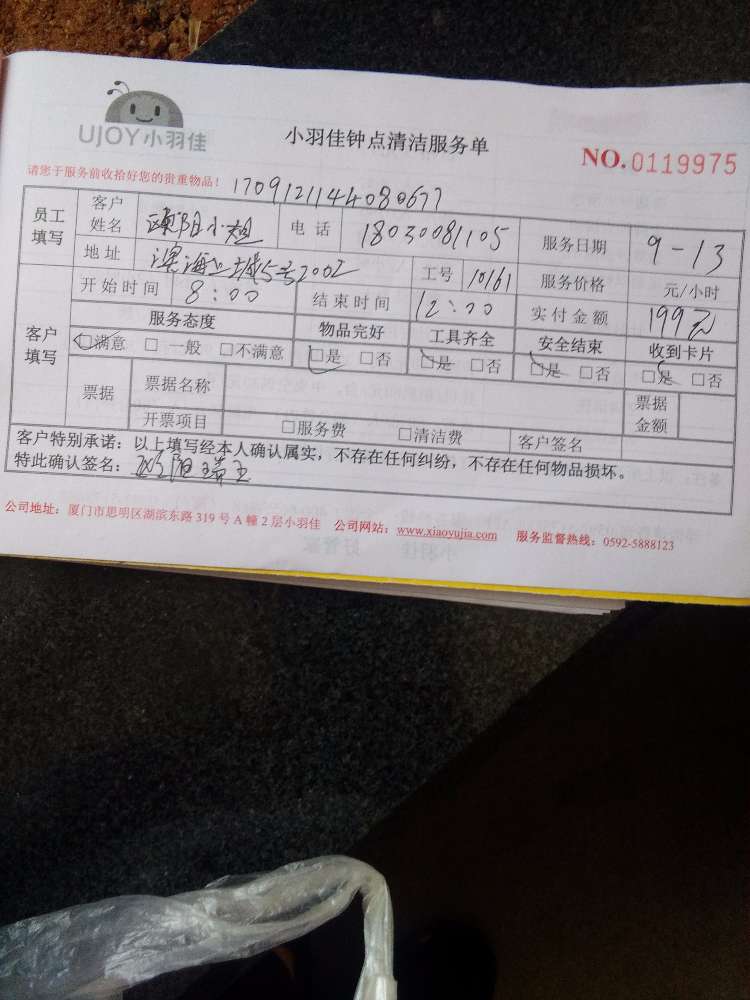 UJOY小羽佳
小羽佳钟点清洁服务单
NO.0119975
请您于服务前收拾好您的贵重物品！ 1709121144080677
员工填写 客户姓名 欧阳小姐 电话 18030081105 服务日期 9-13
地址 滨海上城5号2002 工号 10161 服务价格 元/小时
客户填写 开始时间 8:00 结束时间 12:00 实付金额 199元
服务态度 物品完好 工具齐全 安全结束 收到卡片
□满意 □一般 □不满意 □是 □否 □是 □否 □是 □否 □是 □否
票据 票据名称 票据金额
开票项目 □服务费 □清洁费 客户签名
客户特别承诺：以上填写经本人确认属实，不存在任何纠纷，不存在任何物品损坏。
特此确认签名：欧阳
公司地址：厦门市思明区湖滨东路 319 号 A 幢 2 层小羽佳 公司网站：www.xiaoyujia.com 服务监督热线：0592-5888123